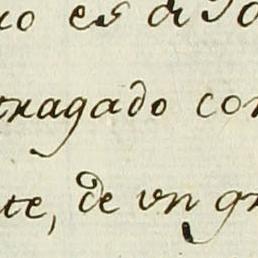 es
tragado con
te, de vn gr